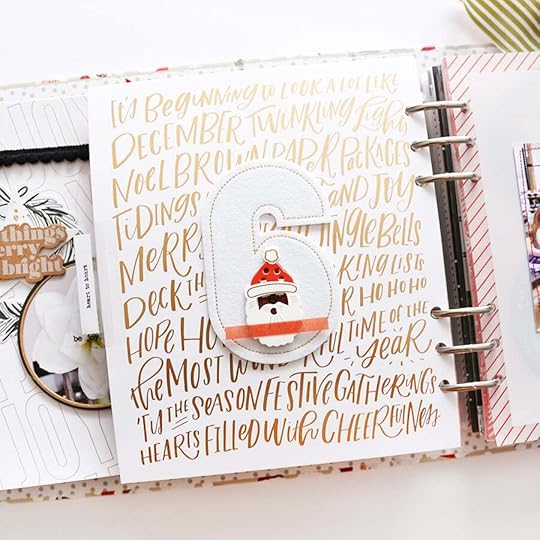 It's Beginning to LOOK A LOT LIKE
DECEMBER TWINKLING Lights
NOEL BROWN PAPER PACKAGES
TIDINGS AND JOY
MERRY JINGLE BELLS
DECK THE KING LISTS
HOPE HO R HO HO HO
the MOST WONDERFUL TIME OF THE YEAR
'TIS THE SEASON FESTIVE GATHERINGS
HEARTS FILLED WITH CHEERFULNESS
6
things
merry
bright
heart to heart
be